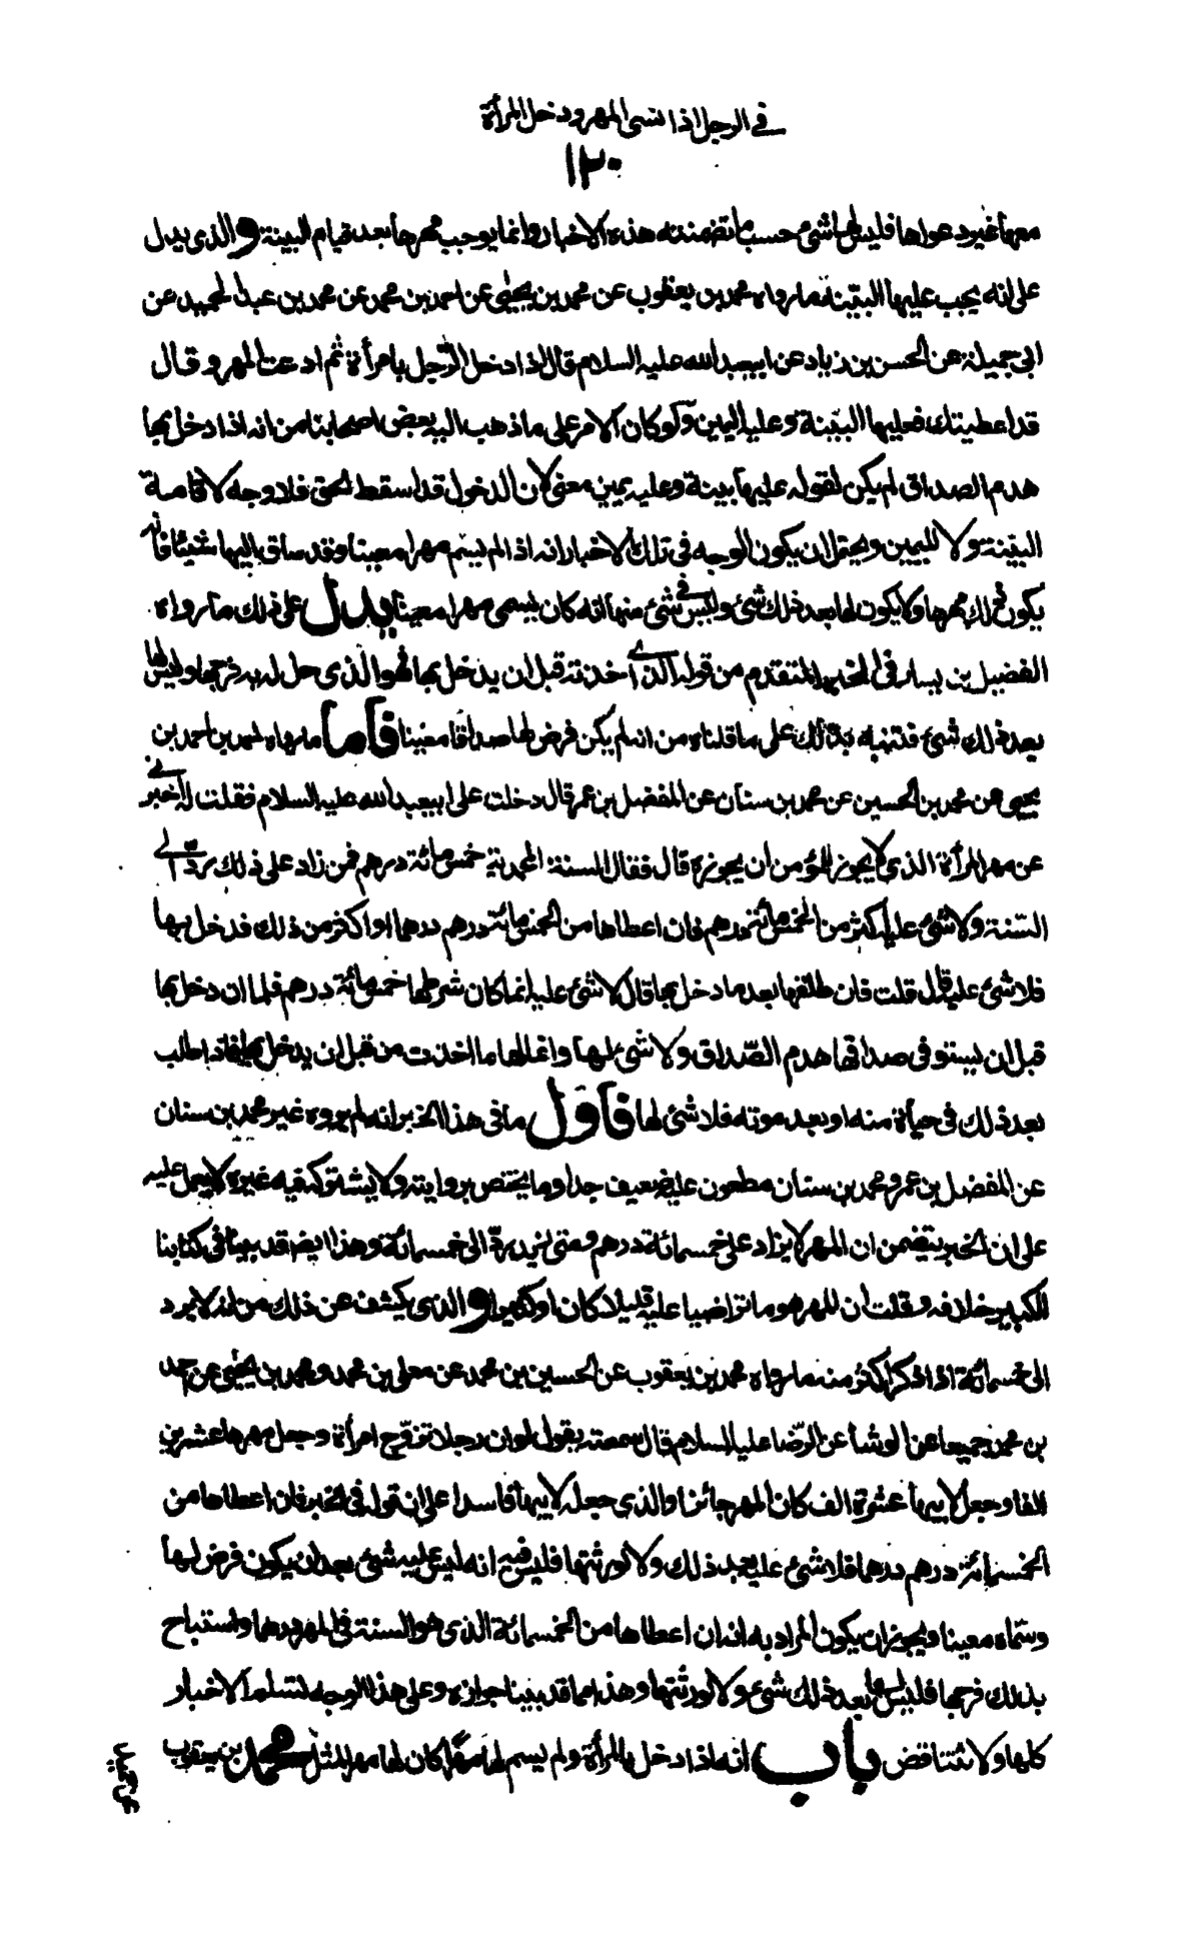 في الرجل اذا نسى المهر ودخل المرأة
١٢٠
معها غير دعواها فليس لها شئ حسب ما تضمنته هذه الاخبار وانما يوجب مهرها بعد قيام البينة والذى يدل
على انه يجب عليها البيّنة ما رواه محمد بن يعقوب عن محمد بن يحيى عن احمد بن محمد عن محمد بن عبد الحميد عن
ابى جميلة عن الحسن بن زياد عن ابيعبد الله عليه السلام قال اذا دخل الرّجل بامرأة ثم ادعت المهر وقال
قد اعطيتك فعليها البيّنة وعليه اليمين ولو كان الامر على ما ذهب اليه بعض اصحابنا من انه اذا دخل بها
هدم الصداق لم يكن لقوله عليها بينة وعليه يمين معنى لان الدخول قد اسقط الحق فلا وجه لاقامة
البيّنة ولا لليمين ويحتمل ان يكون الوجه في تلك الاخبار انه اذا لم يسّم مهرا معينا وقد ساق اليها شيئا فانه
يكون ذلك مهرها ولا يكون لها بعد ذلك شئ وليس في شئ منها انه كان يسمى مهرا معينا يدل على ذلك ما رواه
الفضيل بن يسار في الخبر المتقدم من قوله الذى اخذته قبل ان يدخل بها فهو الذى حل له به فرجها وليس لها
بعد ذلك شئ فتنبه بذلك على ما قلناه من انه لم يكن فرض لها صداقا معينا فاما ما رواه احمد بن احمد بن
يحيى عن محمد بن الحسين عن محمد بن سنان عن المفضل بن عمر قال دخلت على ابيعبد الله عليه السلام فقلت له اخبرنى
عن مهر المرأة الذى لا يجوز للمؤمن ان يجوزه قال فقال السنة المحمدية خمس مائة درهم فمن زاد على ذلك ردّ الى
السّنة ولا شئ عليه اكثر من الخمس مائة درهم فان اعطاها من الخمس مائة درهم درهما او اكثر من ذلك فدخل بها
فلا شئ عليه قال قلت فان طلقها بعد ما دخل بها قال لا شئ عليه انما كان شرطها خمس مائة درهم فلما ان دخل بها
قبل ان يستوفى صداقها هدم الصّداق ولا شئ لها وانما لها ما اخذت من قبل ان يدخل بها فاذا طلب
بعد ذلك في حياة منه او بعد موته فلا شئ لها فاول ما في هذا الخبر انه لم يروه غير محمد بن سنان
عن المفضل بن عمر ومحمد بن سنان مطعون عليه ضعيف جدا وما يختص بروايته ولا يشاركه فيه غيره لا يعمل عليه
على ان الخبر يتضمن ان المهر لا يزاد على خمسمائة درهم ومتى زيد ردّ الى خمسمائة وهذا ايضا قد بينا في كتابنا
الكبير خلافه وقلت ان للمهر هو ما تراضيا عليه قليلا كان او كثيرا والذى يكشف عن ذلك من انه لا يرد
الى خمسمائة اذا ذكر اكثر منه ما رواه محمد بن يعقوب عن الحسين بن محمد عن معلى بن محمد ومحمد بن يحيى عن احمد
بن محمد جميعا عن الوشأ عن الرّضا عليه السلام قال سمعته يقول لو ان رجلا تزوّج امرأة وجعل مهرها عشرين
الفا وجعل لابيها عشرة الف كان المهر جائزا والذى جعله لابيها فاسدا على ان قوله في الخبر فان اعطاها من
الخمسمائة درهم درهما فلا شئ عليه بعد ذلك ولا لورثتها فليس فيه انه ليس عليه شئ بعد ان يكون فرض لها
وسّماه معينا ويجوز ان يكون المراد به انه ان اعطاها من الخمسمائة الذى هو السنة في المهر درهما واستباح
بذلك فرجها فليس لها بعد ذلك شئ ولا لورثتها وهذا مما قد بينا جوازه وعلى هذا الوجه لتسلم الاخبار
كلها ولا تتناقض باب انه اذا دخل بالمرأة ولم يسم لها مهرا كان لها مهر المثل محمد بن يعقوب